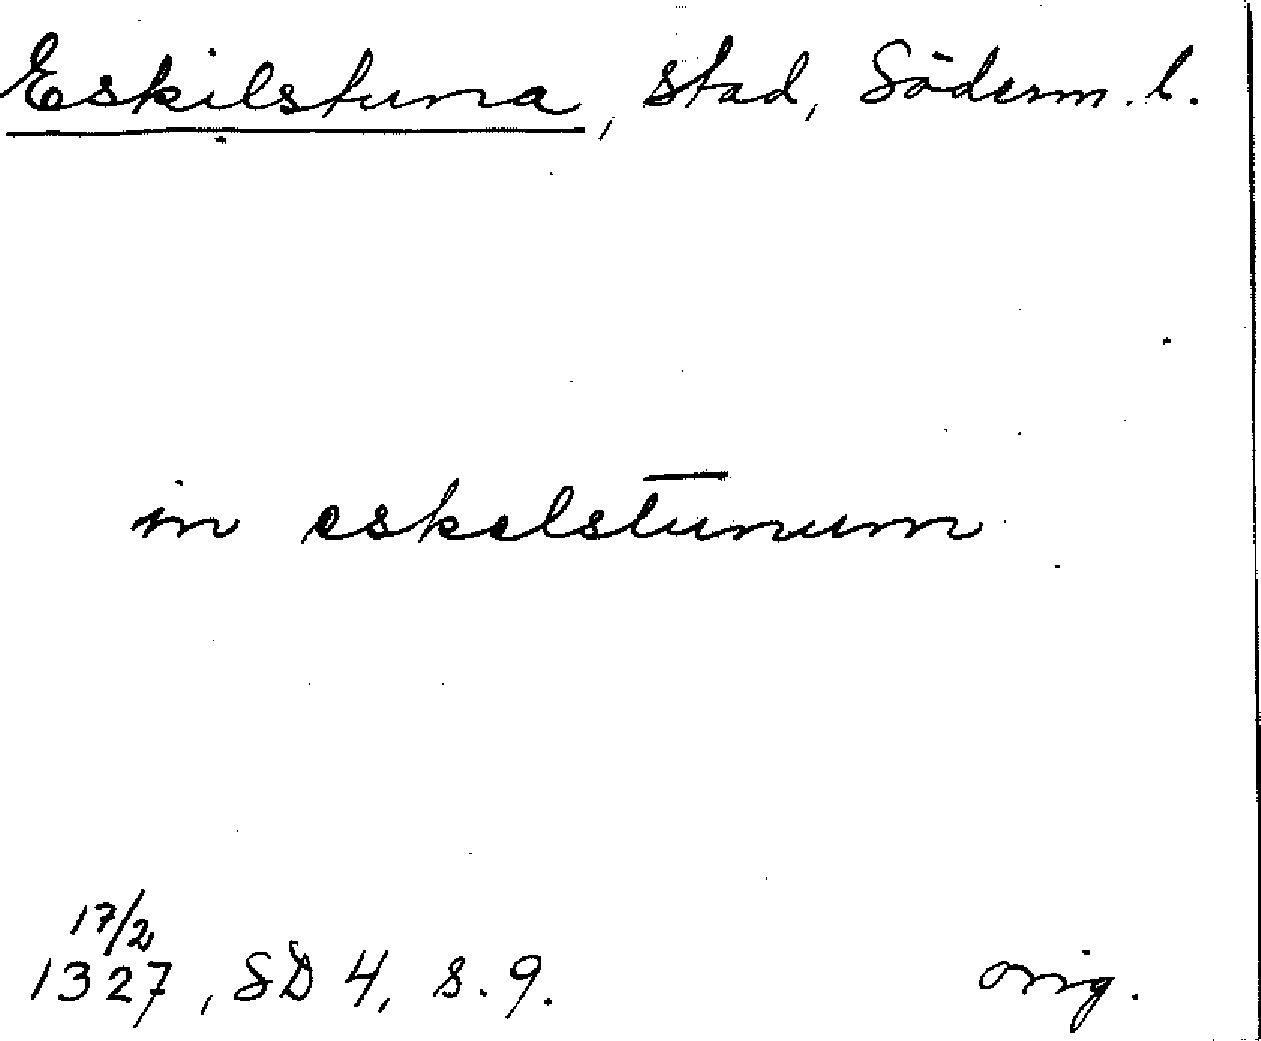 Eskilstuna, stad, Söderm. l.
in eskelstūnum
17/2
1327, SD 4, s. 9. orig.